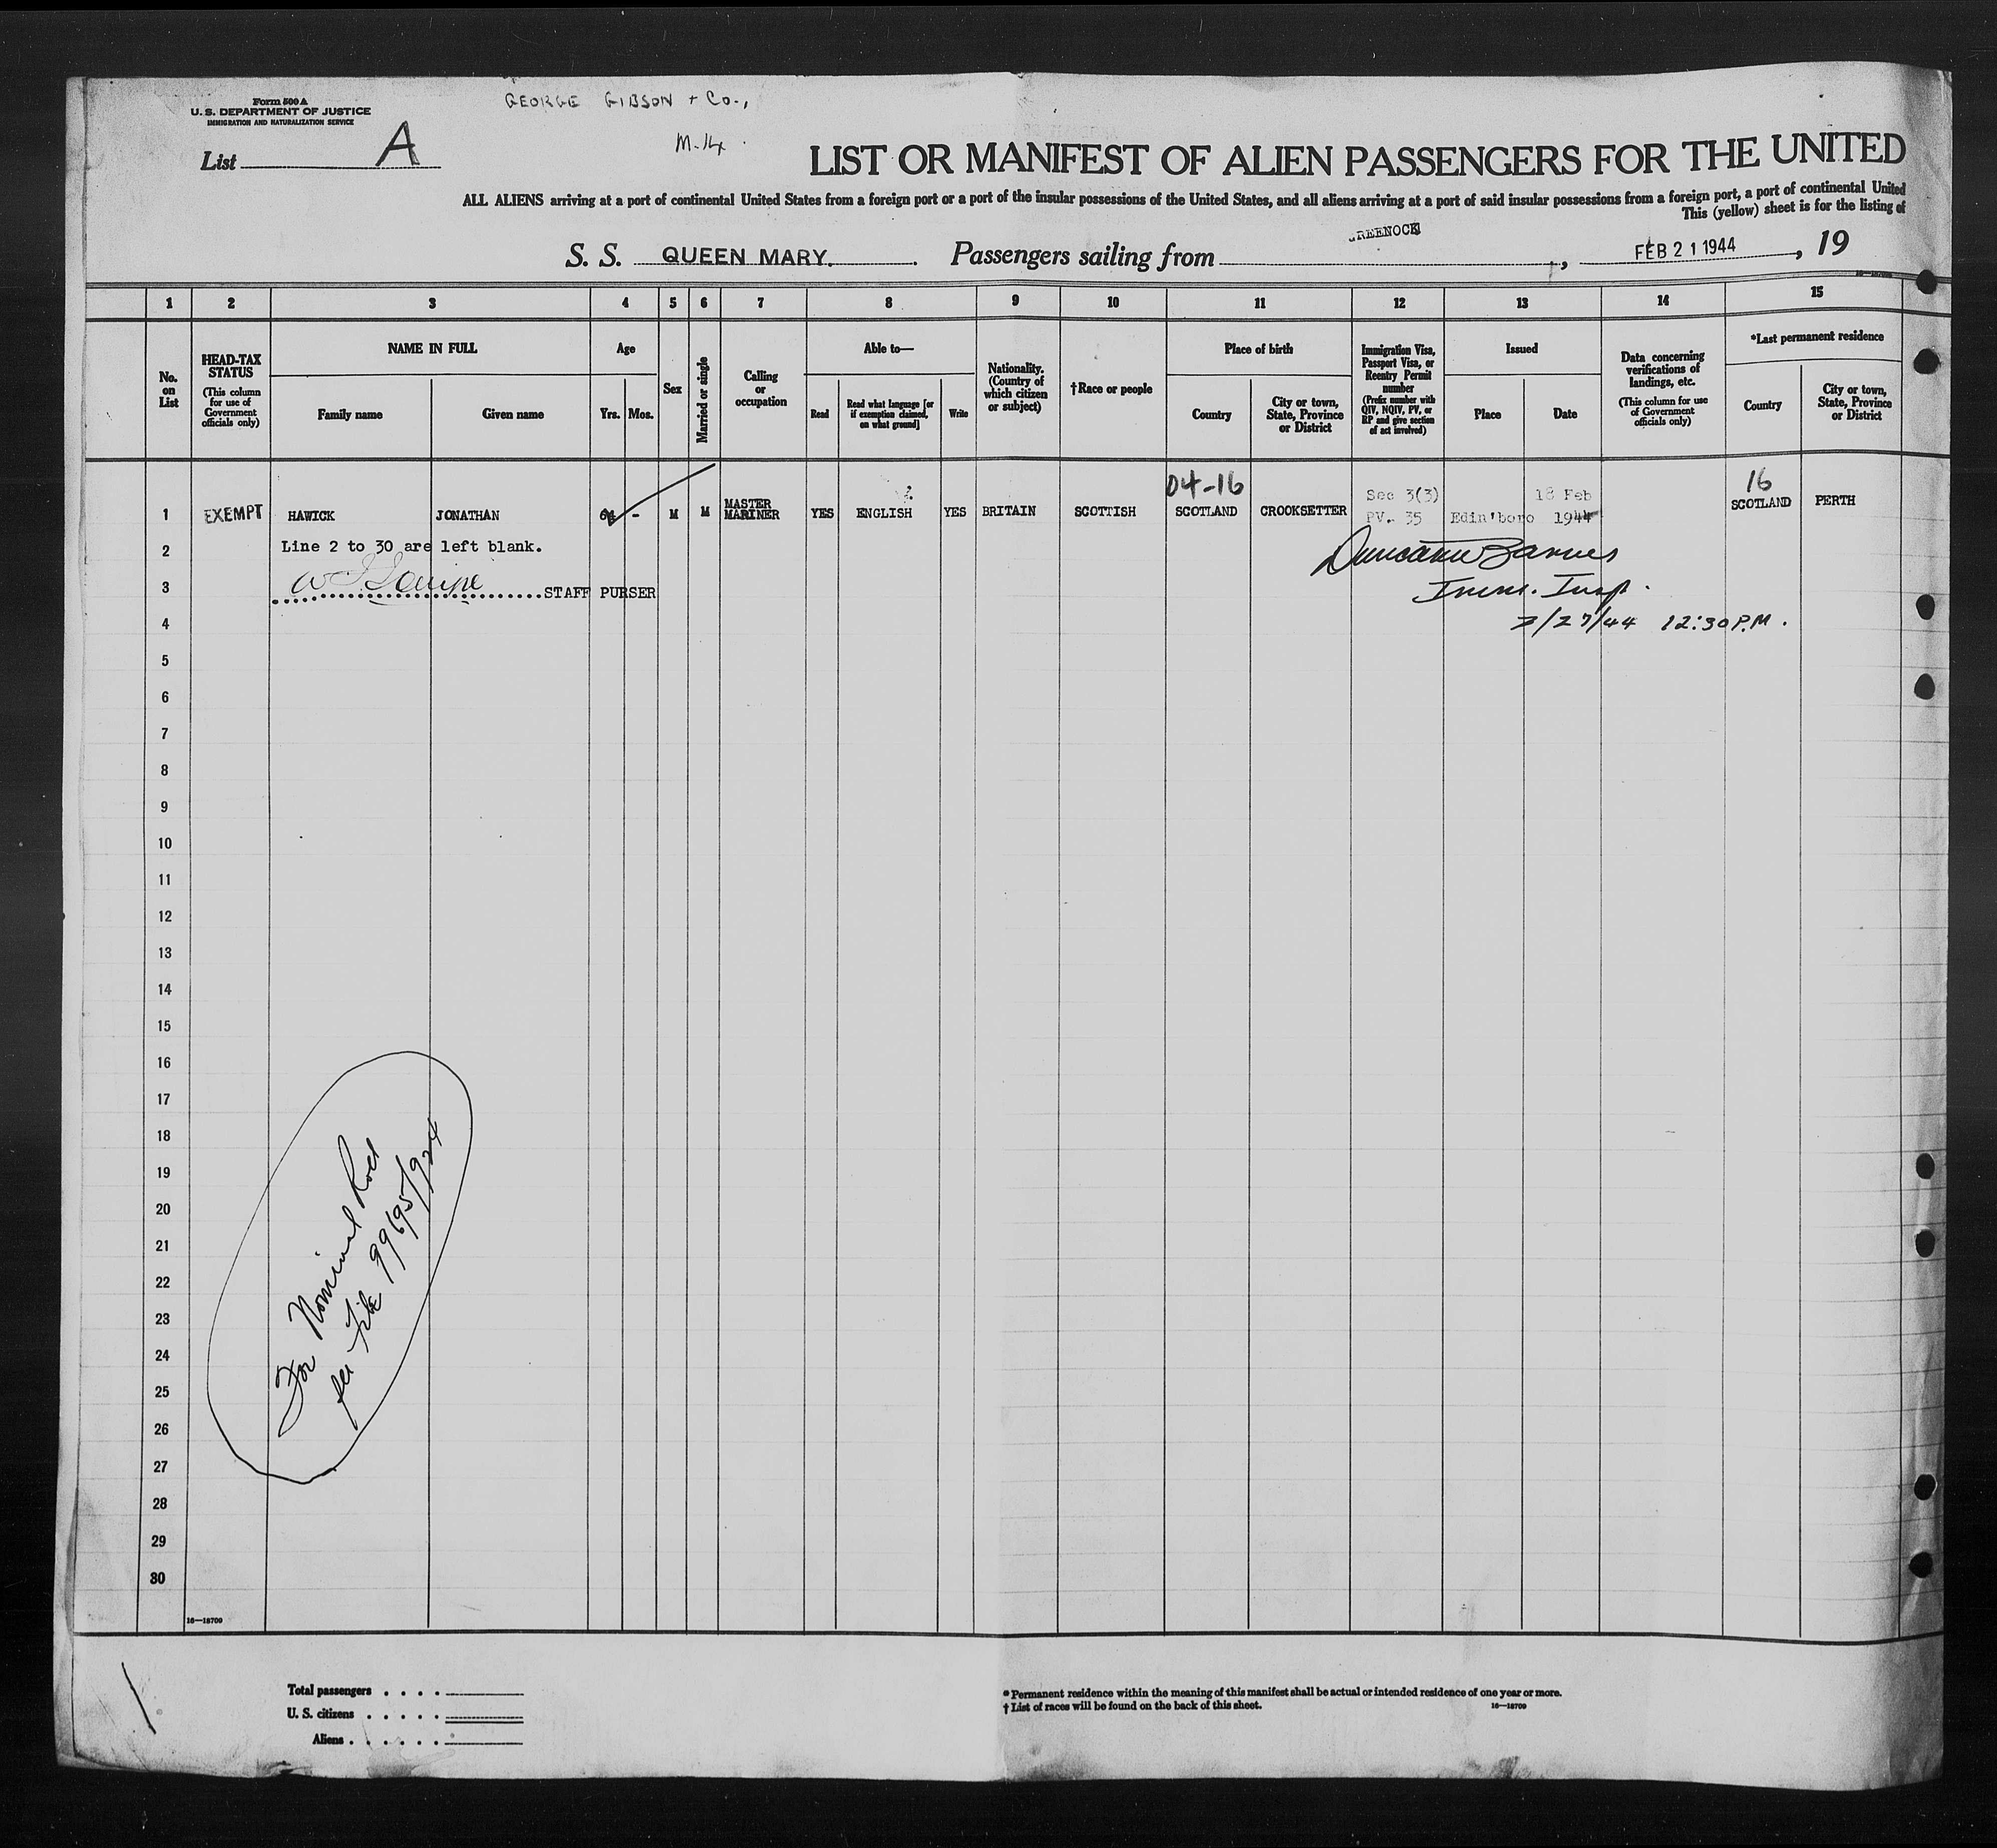 Form 500 A
U. S. DEPARTMENT OF JUSTICE
IMMIGRATION AND NATURALIZATION SERVICE
GEORGE GIBSON + Co.,
M-14.
List A
LIST OR MANIFEST OF ALIEN PASSENGERS FOR THE UNITED
ALL ALIENS arriving at a port of continental United States from a foreign port or a port of the insular possessions of the United States, and all aliens arriving at a port of said insular possessions from a foreign port, a port of continental United
This (yellow) sheet is for the listing of
S. S. QUEEN MARY. Passengers sailing from GREENOCK, FEB 21 1944, 19
16—18709
1 2 3 4 5 6 7 8 9 10 11 12 13 14 15
No. on List
HEAD-TAX STATUS (This column for use of Government officials only)
NAME IN FULL
Family name Given name
Age
Yrs. Mos.
Sex
Married or single
Calling or occupation
Able to—
Read Read what language [or if exemption claimed, on what ground] Write
Nationality. (Country of which citizen or subject)
†Race or people
Place of birth
Country City or town, State, Province or District
Immigration Visa, Passport Visa, or Reentry Permit number (Prefix number with QIV, NQIV, PV, or RP and give section of act involved)
Issued
Place Date
Data concerning verifications of landings, etc. (This column for use of Government officials only)
*Last permanent residence
Country City or town, State, Province or District
04-16 Sec 3(3) 18 Feb 16
1 EXEMPT HAWICK JONATHAN - M M MASTER MARINER YES ENGLISH YES BRITAIN SCOTTISH SCOTLAND CROOKSETTER PV. 35 Edin'boro 1944 SCOTLAND PERTH
2 Line 2 to 30 are left blank.
3 STAFF PURSER Imm. Insp.
4 2/27/44 12:30 P.M.
5
6
7
8
9
10
11
12
13
14
15
16
17
18
19
20
21
22
23
24
25
26
27
28
29
30
For Nominal Roll
see File 99695/924
16—18709
Total passengers . . . .
U. S. citizens . . . . .
Aliens . . . . . .
* Permanent residence within the meaning of this manifest shall be actual or intended residence of one year or more.
† List of races will be found on the back of this sheet.
16—18709